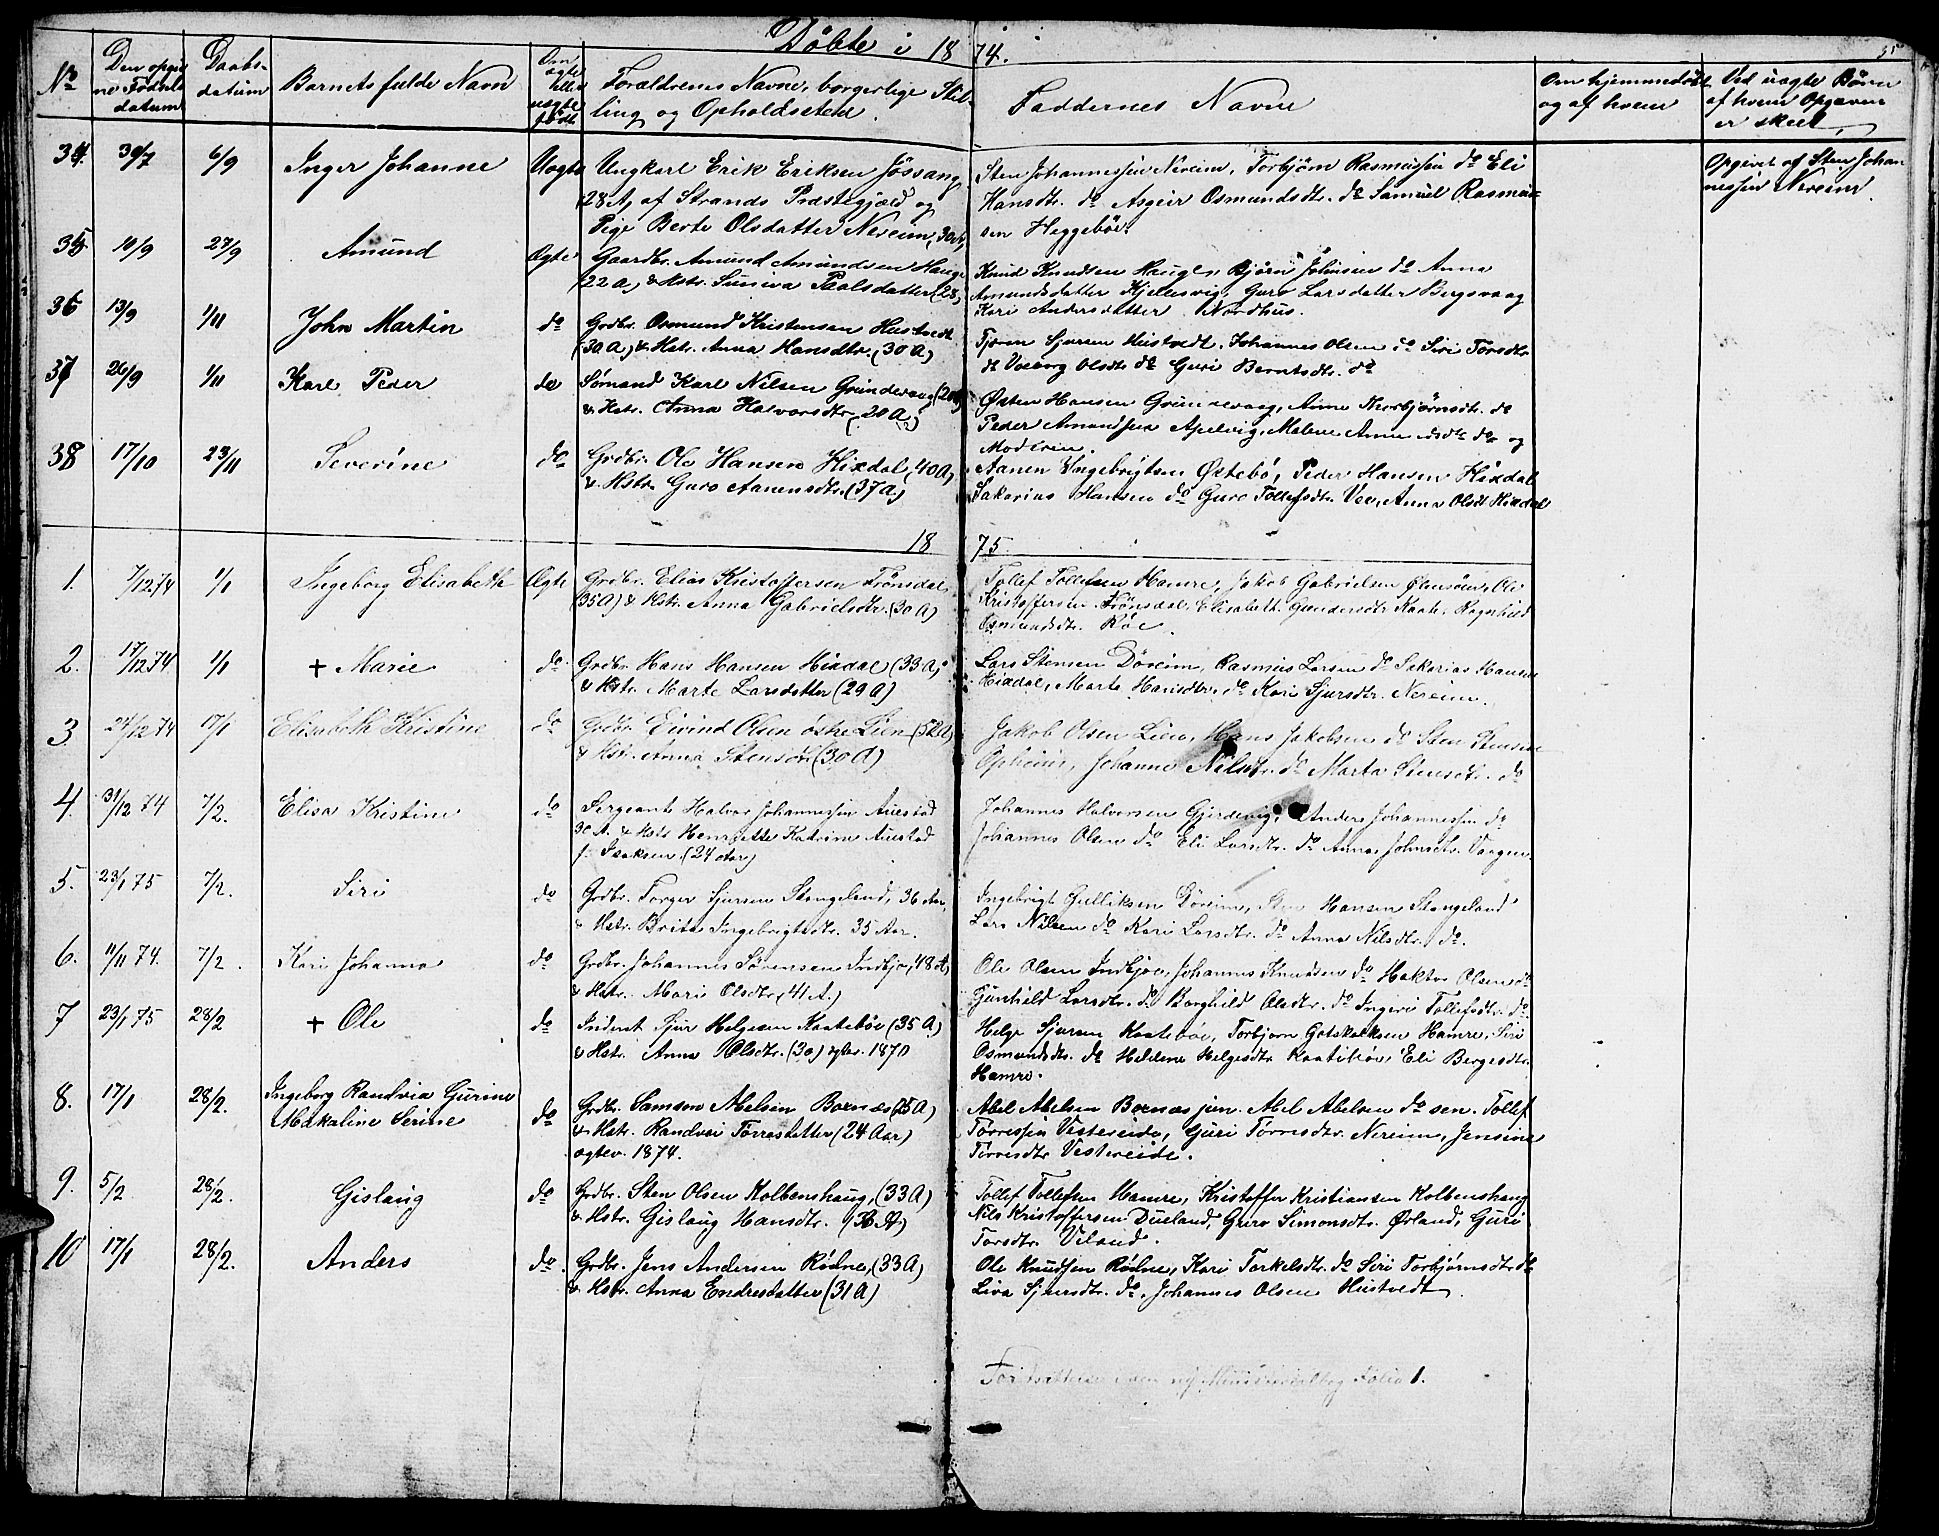 Døbte i 18 74.
No
Den opgiv
ne Fødsels
datum
Daabs-
datum
Barnets fulde Navn
Om
ægte
eller
uægte
født
Forældrenes Navne, borgerlige Stil-
ling og Opholdssted.
Faddernes Navne
Om hjemmedøbt
og af hvem
Ved uægte Børn
af hvem Opgaven
er skeet,
34. 30/7 6/9 Inger Johanne Uægte Ungkarl Erik Eriksen Jössang
28 A, af Strands Præstegjæld og
Pige Berte Olsdatter Nereim, 30 A,
Sten Johannessen Nereim, Torbjörn Rasmussen do Eli
Hansdtr. do Asgier Osmundsdtr. do Samuel Rasmus-
sen Heggebøe.
Opgivet af Sten Johan
nessen Nereim.
35 10/9 27/9 Amund Ægte Gaardbr. Amund Amundsen Hauge
(22 A) & Hstr. Suniva Paalsdatter (28)
Knud Knudsen Hauge, Bjørn Johnsen do Anna
Amundsdatter Kjellesvig, Guro Larsdatter Bergsvaag
Kari Andersdatter Nordhus.
36 13/9 1/11 John Martin do Grdbr. Osmund Kristensen Hustvedt
(30 A) & Hstr. Anna Hansdtr. (30 A)
Sjursen Hustvedt, Johannes Olsen do Siri Torsdtr.
do Olsdtr. do Guri Berntsdtr. do
37 26/9 1/11 Karl Peder do Sømand Karl Nilsen
& Hstr. Anna Halvorsdtr. (20 A)
Østen Hansen Anne Thorbjørnsdtr. do
Peder Amundsen Apelvig, Malene do og
Moderen.
38 17/10 23/11 Severine do Grdbr. Ole Hansen Hixdal, (40 A)
& Hstr. Guro Aanensdtr. (37 A)
Aanen Ingebrigtsen Østebö, Peder Hansen Hixdal
Sakarius Hansen do Guro Tollefsdtr. Vee, Anna Olsdt Hixdal
18 75
1. 7/12 74 1/1 Ingeborg Elisabeth Ægte Grdbr. Elias Kristoffersen Frönsdal
(35 A) & Hstr. Anna Gabrielsdtr. (30 A)
Tollef Tollefsen Hamre, Jakob Gabrielsen Ølensöen, Ole
Kristoffersen Frönsdal, Elisabeth Gundersdtr. Ragnhild
Osmundsdtr. Röe.
2. 17/12 74 1/1 + Marie do Grdbr. Hans Hansen Hixdal (33 A)
& Hstr. Marte Larsdatter (29 A)
Lars Stensen Döreim, Rasmus Larsen do Sakarias Hansen
Hixdal, Marta Hansdtr. do Kari Sjursdtr. Nereim.
3 24/12 74 17/1 Elisabeth Kristine do Grdbr. Eivind Olsen östre Lien (52 A)
& Hstr. Anna Stensdtr (30 A)
Jakob Olsen Lien, Hans Jakobsen do Sten Stensen
Opheim, Johanne Nilsdtr. do Marta Stensdtr. do
4. 31/12 74 7/2. Elisa Kristine do Sergeant Halvor Johannessen Auestad
30 A. & Hstr Henriette Katrine Auestad
f. Isaksen (24 Aar)
Johannes Halvorsen Gjerdevig, Anders Johannessen do
Johannes Olsen do Eli Larsdtr. do Anna Johnsdtr. Vaagen
5. 23/1 75 7/2. Siri do Grdbr. Torger Sjursen Stangeland, 36 Aar,
& Hstr. Brita Ingebrigtsdtr. 35 Aar.
Ingebrigt Gulliksen Döreim, Sten Hansen Stangeland
Lars Nilsen do Kari Larsdtr. do Anna Nilsdtr. do.
6. 11/11 74. 7/2. Kari Johanna do Grdbr. Johannes Sörensen Indbjo, 48 A,
& Hstr. Mari Olsdtr. (41 A.)
Ole Olsen Indbjoe, Johannes Knudsen do Haktor Olsen do
Gunhild Larsdtr. do Borghild Olsdtr. do Ingeri Tollefsdtr. do.
7 23/1 75 28/2 + Ole do Inderst Sjur Helgesen Kaatebøe (35 A.)
& Hstr. Anna Olsdtr. (30) 1870
Helge Sjursen Kaatebøe, Torbjørn Gotskalksen Hamre, Siri
Osmundsdtr. do Heldene Helgesdtr Kaatebøe, Eli Bergesdtr.
Hamre.
8. 17/1 28/2. Ingeborg Randvia Gurine
Makaline Serine do Grdbr. Samson Abelsen Bornæs (25 A)
& Hstr. Randvei Torresdatter (24 Aar)
ægtev. 1874.
Abel Abelsen Bornæs jun. Abel Abelsen do sen. Tollef
Torressen Vestereide, Guri Torresdtr. Nereim, Jensine
Torresdtr. Vestereide.
9. 5/2 28/2. Gislaug do Grdbr. Sten Olsen Kolbenshaug, (33 A)
& Hstr. Gislaug Hansdtr.
Tollef Tollefsen Hamre, Kristoffer Kristiansen Kolbenshaug
Nils Kristoffersen Dueland, Guro Simonsdtr. Ørland, Guri
Torsdtr. Viland.
10 17/1 28/2. Anders do. Grdbr. Jens Andersen Rödne, (33 A)
& Hstr. Anna Endresdatter (31 A)
Ole Knudsen Rödne, Kari Torkelsdtr. do Siri Torbjörnsdtr. do
Liva Sjursdtr. do, Johannes Olsen Hustvedt.
Fortsættelse i den ny Ministerialbog Folio 1.